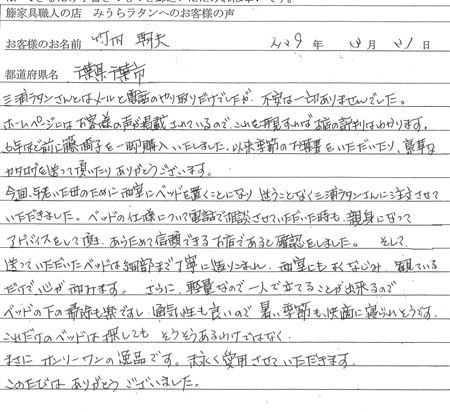 籐家具職人の店 みうらラタンへのお客様の声
お客様のお名前 竹内 朝夫 2009年 3月21日
都道府県名 千葉県千葉市
三浦ラタンさんとはメールと電話のやり取りだけでしたが、不安は一切ありませんでした。
ホームページにはお客様の声が掲載されているので、これを拝見すればお店の評判はわかります。
6年ほど前に籐椅子を一脚購入いたしました。以来季節のお葉書をいただいたり、豪華な
カタログを送って頂いたりありがとうございます。
今回、年老いた母のために和室にベッドを置くことになり迷うことなく三浦ラタンさんに注文させて
いただきました。ベッドの仕様について電話で相談させていただいた時も、親身になって
アドバイスをして頂き、あらためて信頼できるお店であると確認をしました。 そして
送っていただいたベッドは細部まで丁寧に造りこまれ、和室にもよくなじみ、観ている
だけで心が和みます。 さらに、軽量なので一人で立てることが出来るので
ベッドの下の掃除も楽ですし、通気性も良いので暑い季節も快適に寝られそうです。
これだけのベッドは探しても そうそうあるわけではなく、
まさに オンリーワンの逸品です。末永く愛用させていただきます。
このたびは ありがとう ございました。